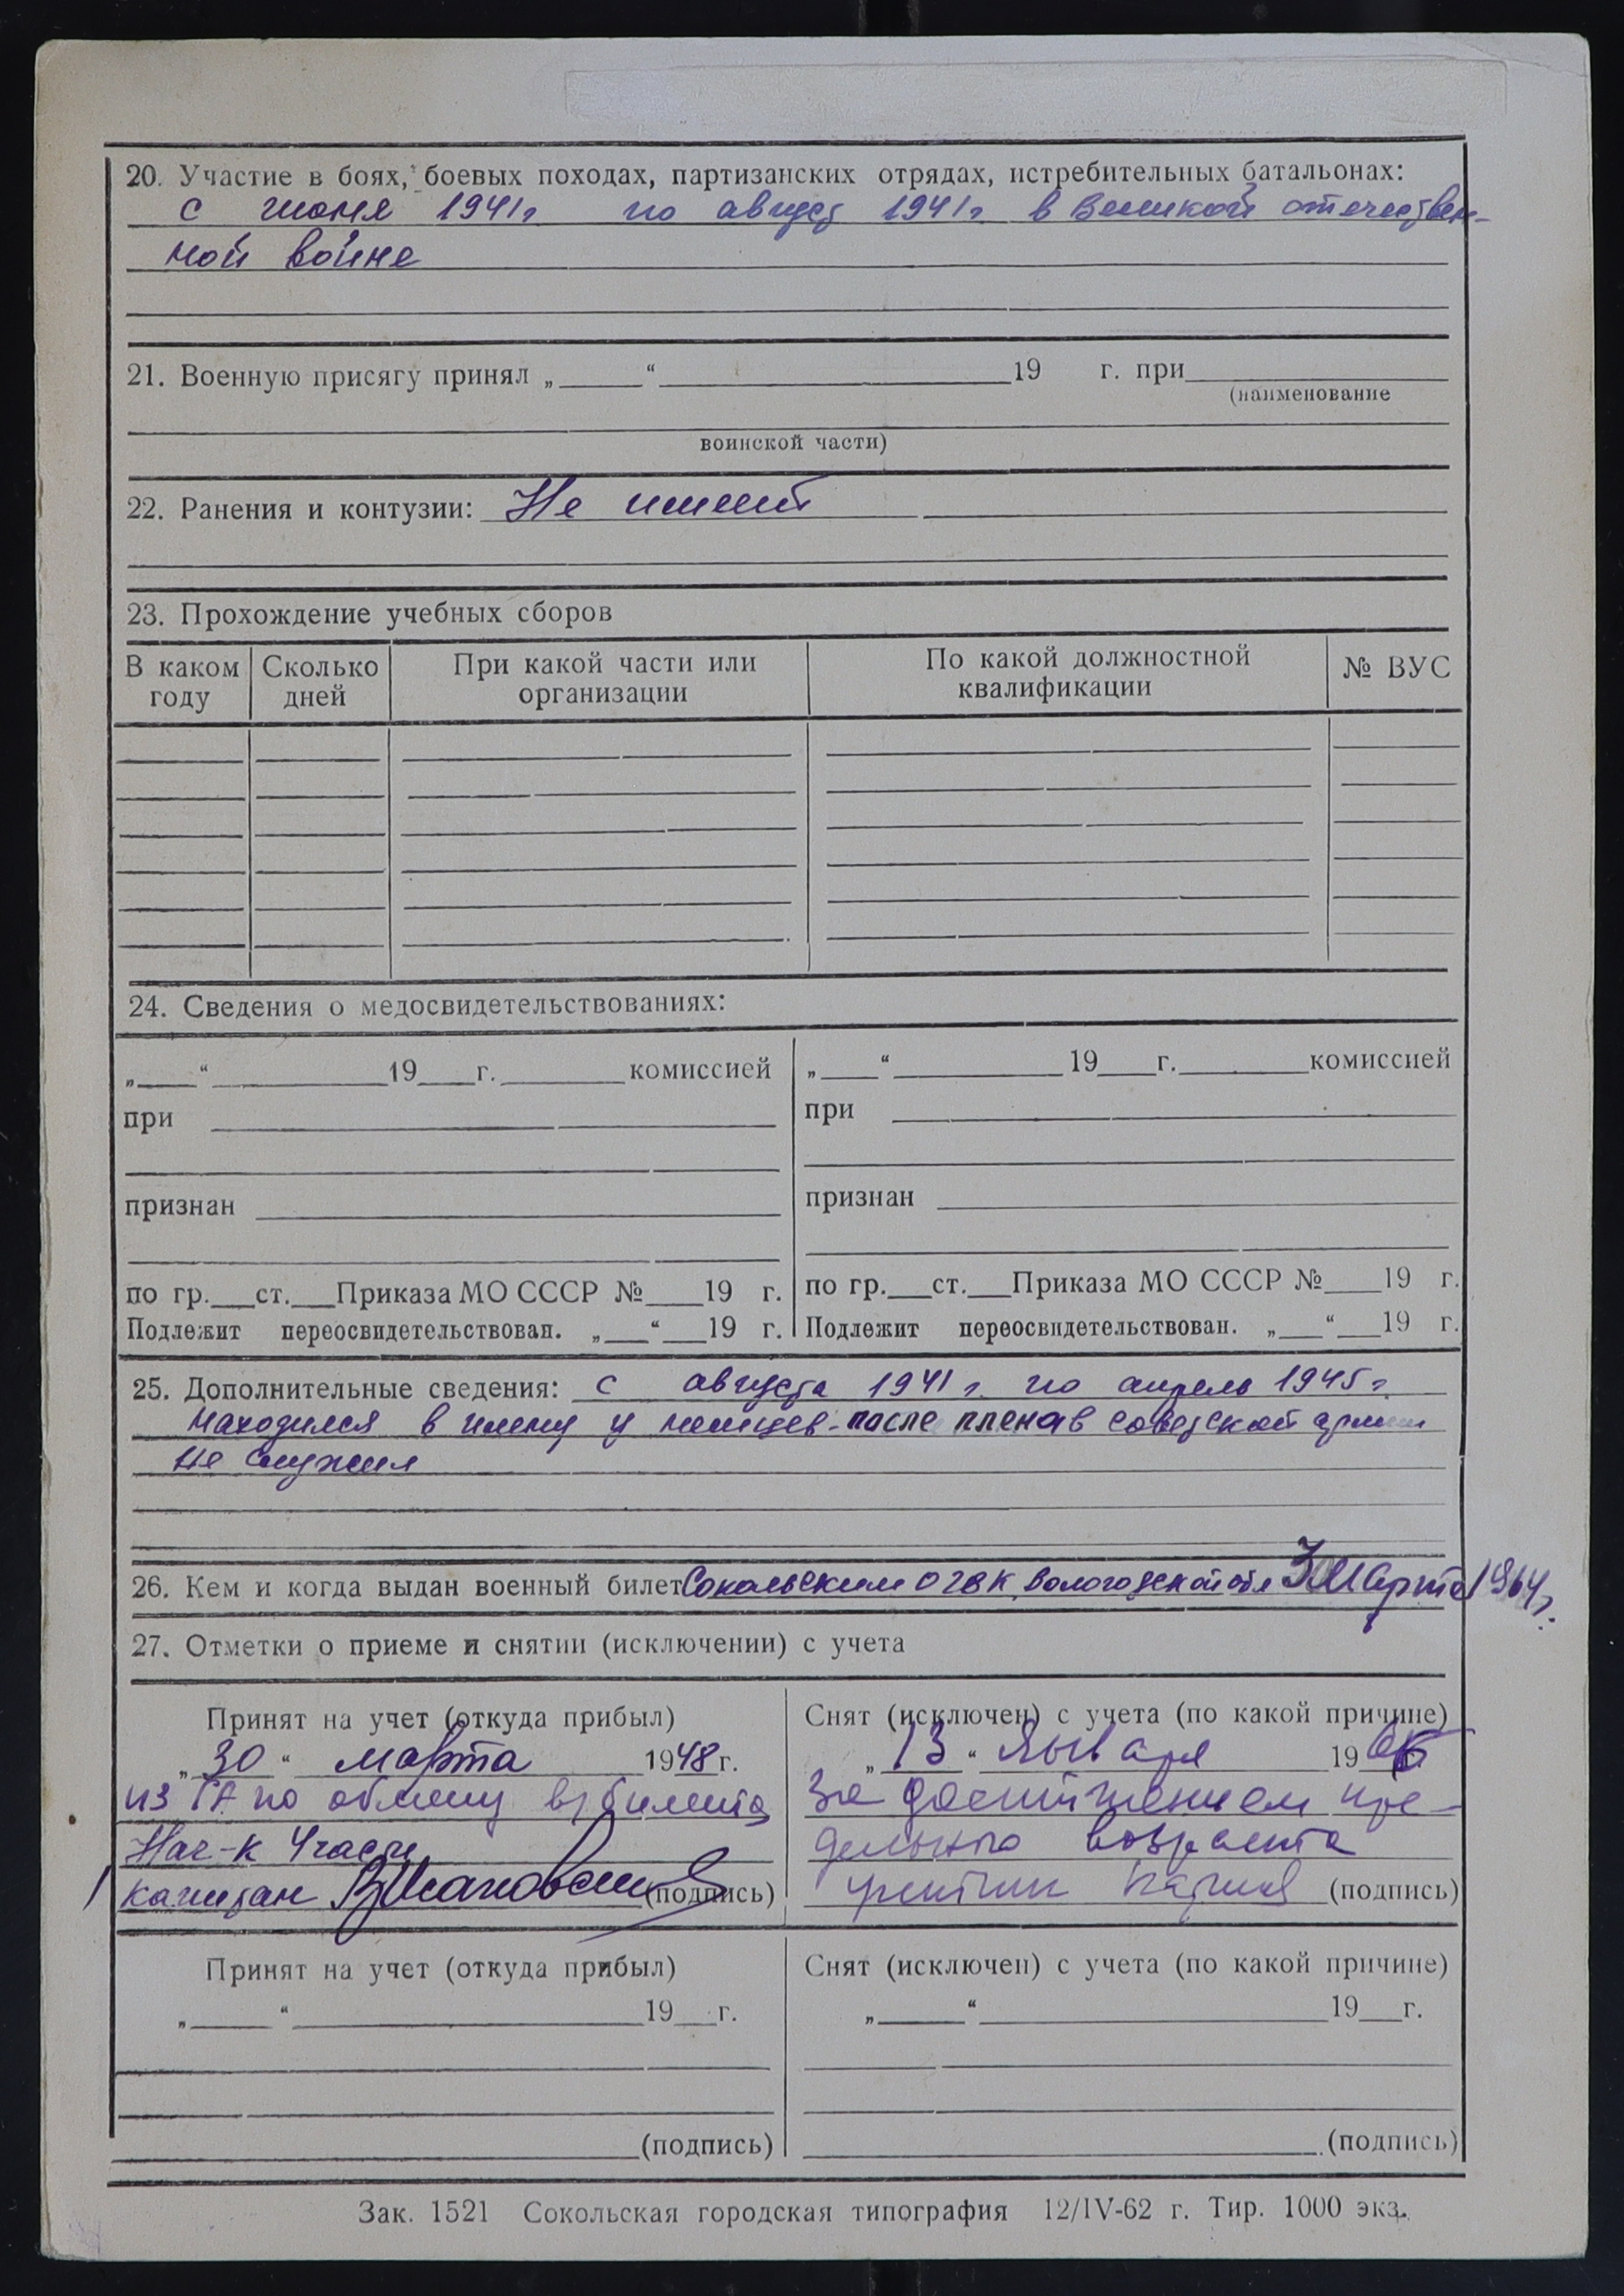 20. Участие в боях, боевых походах, партизанских отрядах, истребительных батальонах:
с июня 1941г по август 1941г. в Великой отечествен-
ной войне
21. Военную присягу принял „ “ 19 г. при
(наименование
воинской части)
22. Ранения и контузии: Не имеет
23. Прохождение учебных сборов
В каком году Сколько дней При какой части или организации По какой должностной квалификации № ВУС
24. Сведения о медосвидетельствованиях:
„ “ 19 г. комиссией „ “ 19 г. комиссией
при при
признан признан
по гр. ст. Приказа МО СССР № 19 г. по гр. ст. Приказа МО СССР № 19 г.
Подлежит переосвидетельствован. „ “ 19 г. Подлежит переосвидетельствован. „ “ 19 г.
25. Дополнительные сведения: с августа 1941г. по апрель 1945г.
находился в плену у немцев-после плена в советской армии
не служил
26. Кем и когда выдан военный билет Сокольским ОГВК, Вологодской обл Марта 1964г.
27. Отметки о приеме и снятии (исключении) с учета
Принят на учет (откуда прибыл) Снят (исключен) с учета (по какой причине)
„ 30 “ марта 1948 г. „ 13 “ января 19
из по обмену в/билета За достижением пре-
Нач-к 4 части дельного возраста
капитан (подпись) (подпись)
Принят на учет (откуда прибыл) Снят (исключен) с учета (по какой причине)
„ “ 19 г. „ “ 19 г.
(подпись) (подпись)
Зак. 1521 Сокольская городская типография 12/IV-62 г. Тир. 1000 экз.